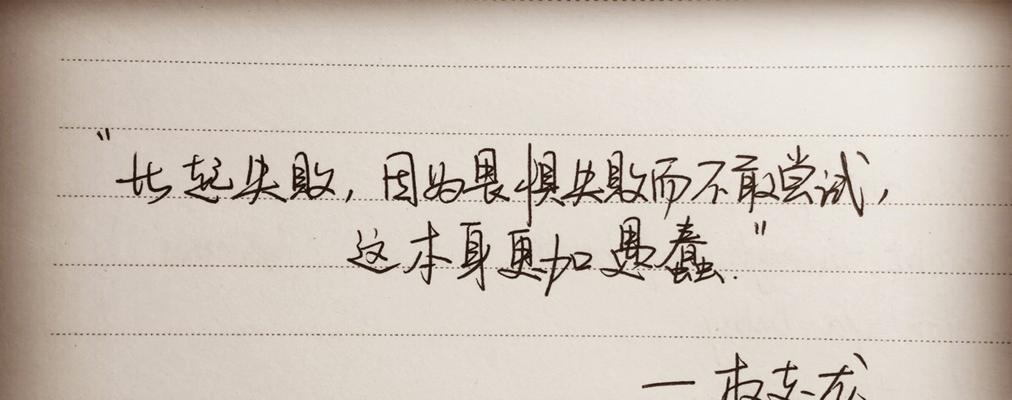 "比起失败，因为畏惧失败而不敢尝试，
这本身更加愚蠢."
—权志龙